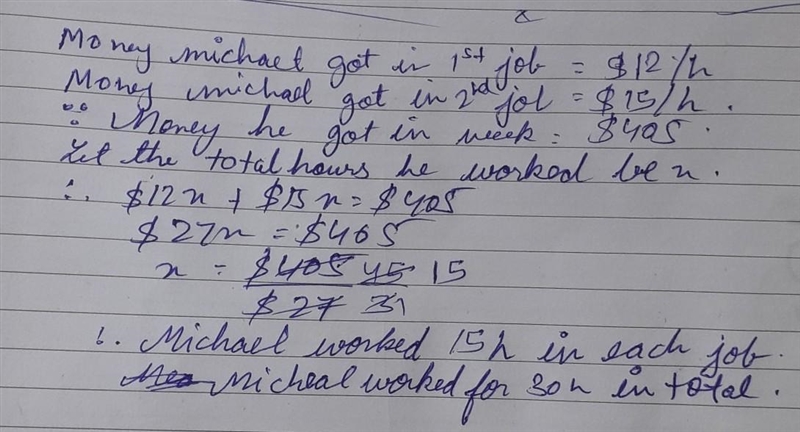 Money michael got in 1st job = $12/h
Money michael got in 2nd job = $15/h.
∵ Money he got in week = $405.
Let the total hours he worked be x.
∴ $12x + $15x = $405
$27x = $405
x = $405 45 15
$27 31
∴ Michael worked 15h in each job.
Micheal worked for 30h in total.